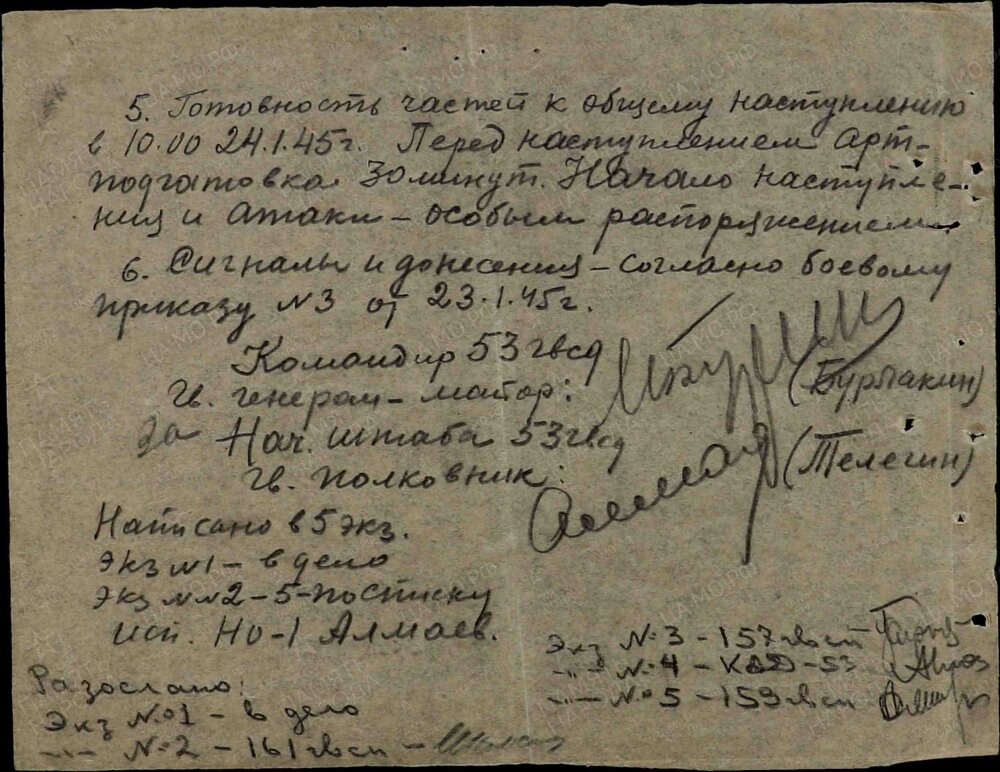 5. Готовность частей к общему наступлению
в 10.00 24.1.45г. Перед наступлением арт-
подгатовка 30 минут. Начало наступле-
ния и атаки - особым распоряжением.
6. Сигналы и донесения - согласно боевому
приказу №3 от 23.1.45г.
Командир 53 гвсд
Гв. генерал-майор: (Бурлакин)
За Нач. штаба 53 гвсд
Гв. полковник: (Телегин)
Написано в 5 экз.
Экз №1 - в дело
Экз №№2-5-по списку
Исп. НО-1 Алмаев.
Разослано:
Экз №1 - в дело
-"- №2 - 161 гвсп -
Экз №3 - 157 гвсп
-"- №4 - КАД-53
-"- №5 - 159 гвсп